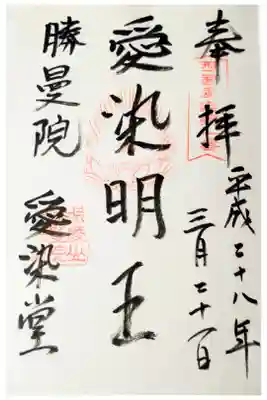 奉拝
平成二十八年
三月二十一日
愛染明王
勝曼院
愛染堂